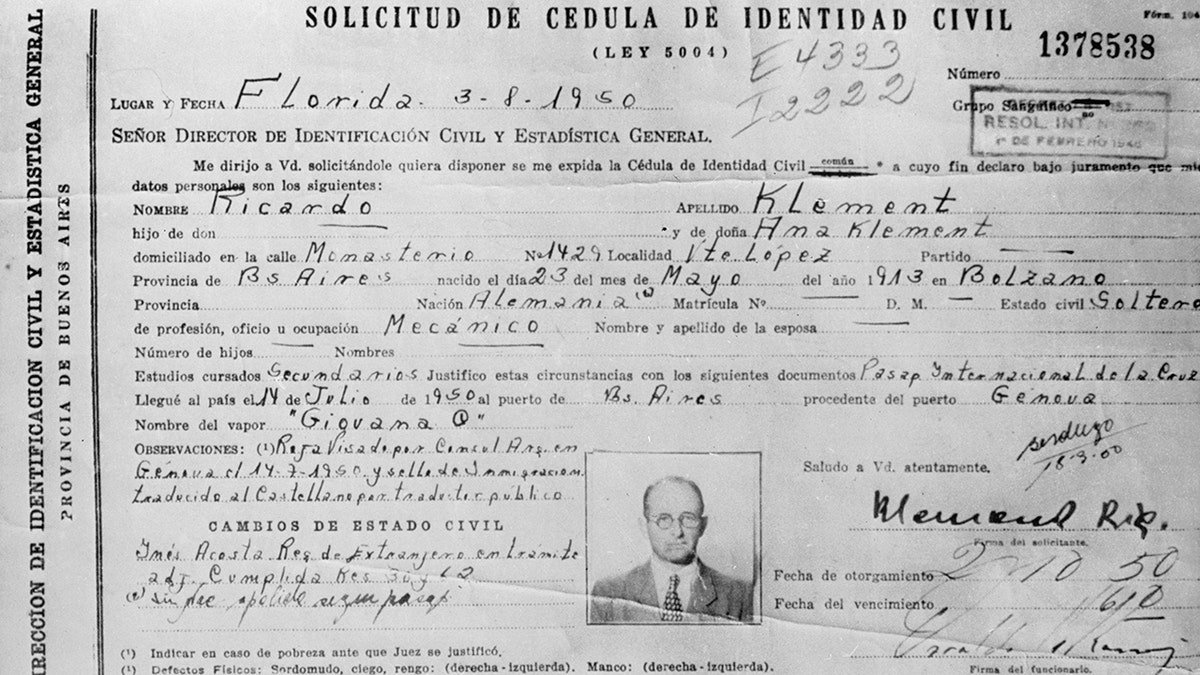 DIRECCION DE IDENTIFICACION CIVIL Y ESTADISTICA GENERAL
PROVINCIA DE BUENOS AIRES
SOLICITUD DE CEDULA DE IDENTIDAD CIVIL
Fórm. 104
(LEY 5004)
E 4333
1378538
I 2222
Número
LUGAR Y FECHA Florida - 3-8-1950
Grupo Sanguíneo
RESOL. INT. Nº
1º DE FEBRERO 1948
SEÑOR DIRECTOR DE IDENTIFICACIÓN CIVIL Y ESTADÍSTICA GENERAL.
Me dirijo a Vd. solicitándole quiera disponer se me expida la Cédula de Identidad Civil común * a cuyo fin declaro bajo juramento que mis
datos personales son los siguientes:
NOMBRE Ricardo APELLIDO Klement
hijo de don y de doña Ana Klement
domiciliado en la calle Monasterio Nº 1429 Localidad Vte. López Partido
Provincia de Bs Aires nacido el día 23 del mes de Mayo del año 1913 en Bolzano
Provincia Nación Alemania Matrícula Nº D. M. Estado civil Soltero
de profesión, oficio u ocupación Mecánico Nombre y apellido de la esposa
Número de hijos Nombres
Estudios cursados Secundarios Justifico estas circunstancias con los siguientes documentos Pasap Internacional de la Cruz
Llegué al país el 14 de Julio de 1950 al puerto de Bs. Aires procedente del puerto Genova
Nombre del vapor "Giovana C"
OBSERVACIONES: (1) Roja Visado por Consul Arg. en
Génova el 14-7-1950 y sello de Inmigracion
traducido al Castellano por traductor público
Saludo a Vd. atentamente.
CAMBIOS DE ESTADO CIVIL
Klement Ric.
Firma del solicitante.
Inés Acosta Reg. de Extranjero en trámite
adj. Cumplida Res 30 y 62
Fecha de otorgamiento 2 10 50
Fecha del vencimiento
(1) Indicar en caso de pobreza ante que Juez se justificó.
(1) Defectos Físicos: Sordomudo, ciego, rengo: (derecha - izquierda). Manco: (derecha - izquierda).
Firma del funcionario.